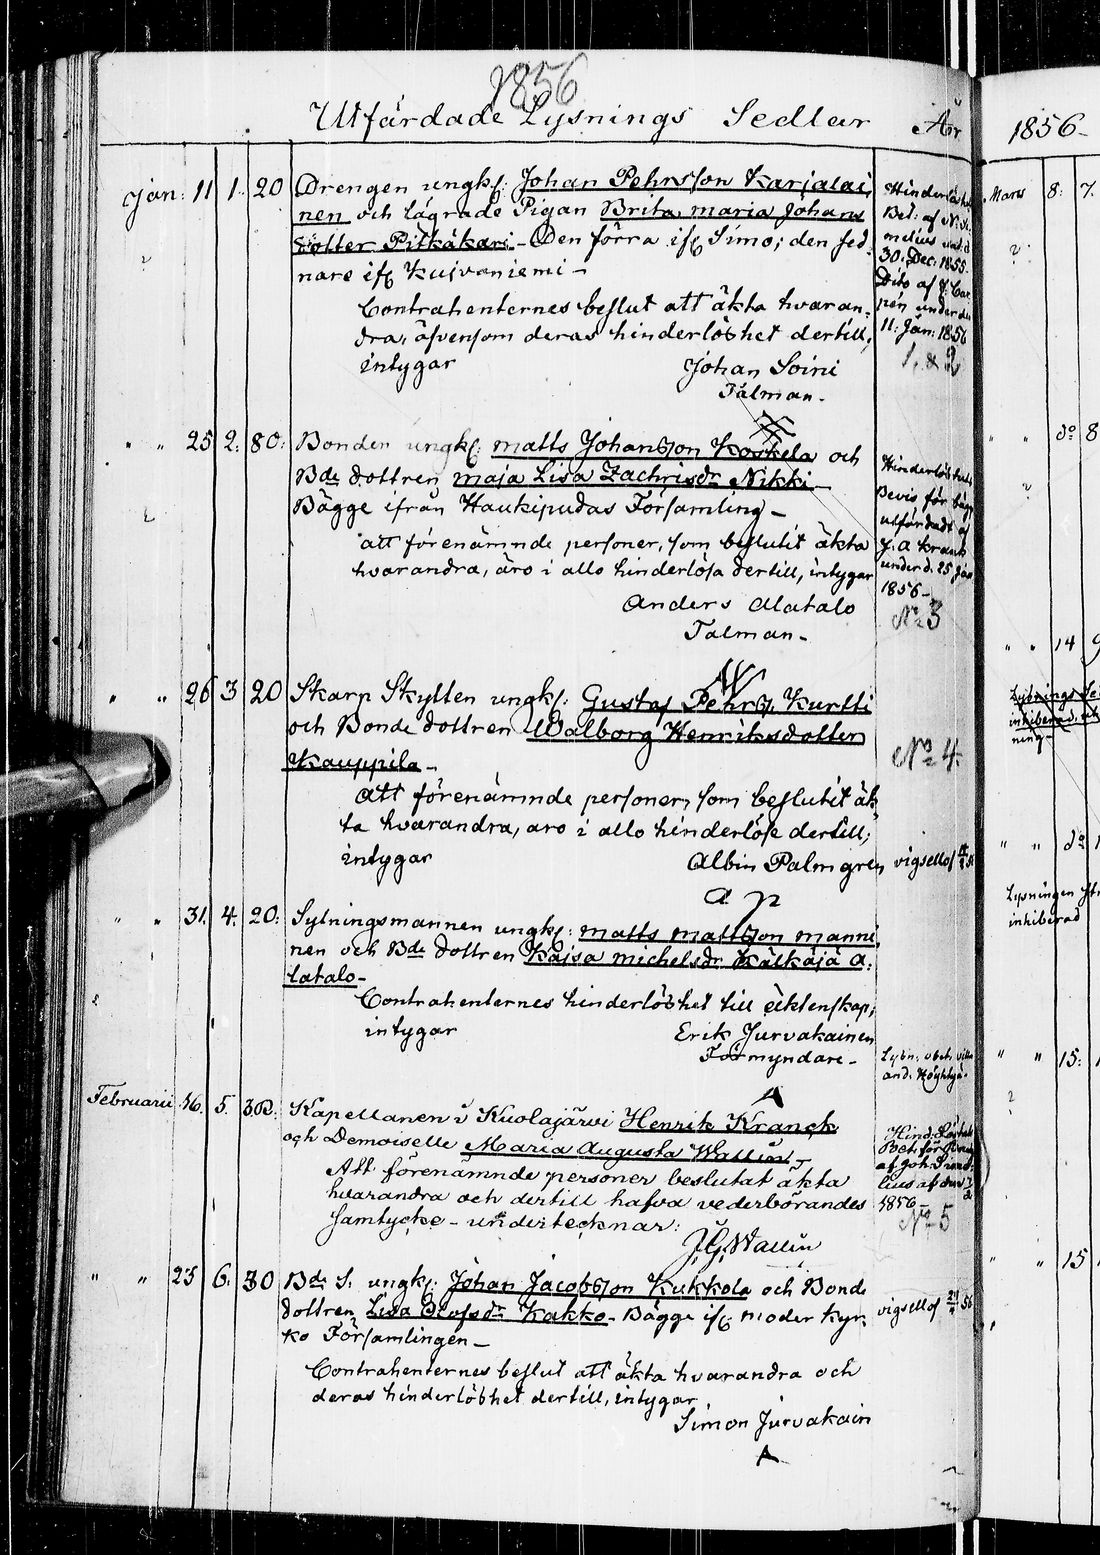 1856
Utfärdade Lysnings Sedlar År 1856-
Jan: 11 1. 20 Drengen ungk: Johan Pehrsson Karjalai
nen och lägrade Pigan Brita maria Johans
dotter Pitkäkari - Den förra ifr Simo; den sed-
nare ifr Kuivaniemi -
Contrahenternes beslut att äkta hvaran-
dra, äfvensom deras hinderlöshet dertill,
intygar Johan Soini
Talman.
30: Dec: 1855.
Dito af
pén under den
11: Jan: 1856
1. & 2
" " 25 2. 80: Bonden ungk: matts Johansson Koskela och
Bde dottren maja Lisa Zachrisdr Nikki
Bägge ifrån Haukipudas Församling -
att förenämnde personer, som beslutit äkta
hvarandra, äro i allo hinderlösa dertill, intygar
Anders Alatalo
Talman -
Hinderlöshets
Bevis för bägge
utfärdadt af
J. A Krank
under d. 25 Jan
1856 -
No 3
" " 26 3 20 Skarp Skytten ungk: Gustaf Pehrs. Kurtti
och Bonde dottren Walborg Henriksdotter
Kauppila -
Att förenämnde personer, som beslutit äk
ta hvarandra, äro i allo hinderlöse dertill,
intygar Albin Palmgren
No 4.
vigsell of
" " 31. 4. 20: Sytningsmannen ungk: matts mattsson manni
nen och Bde dottren Kajsa michelsdr Kälkäjä A:
latalo -
Contrahenternes hinderlöshet till äktenskap,
intygar Erik Jurvakainen
Förmyndare -
Februarii 16. 5. 30. Kapellanen i Kuolajärvi Henrik Kranck
och Demoiselle Maria Augusta Wallin -
Att förenämnde personer beslutat äkta
hvarandra och dertill hafva vederbörandes
samtycke - undertecknar:
J. G. Wallin
1856 -
No 5
" " 23 6. 30 Bde S. ungk: Johan Jacobsson Kukkola och Bonde
dottren Lisa Olofsdr Kakko - Bägge ifr moder kyr-
ko Församlingen -
Contrahenternes beslut att äkta hvarandra och
deras hinderlöshet dertill, intygar
Simon Jurvakain
vigsell of 56
Mars 8: 7.
" " do 8
" " 14 9
inhiberad
" " do
Lysningen
inhiberad
" " 15:
" " 15